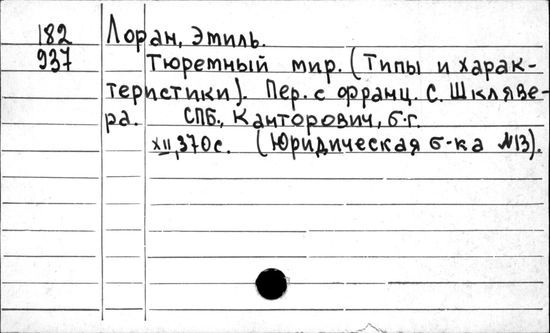 182 Лоран, Этиль.
937 Тюремный мир. (Типы и харак-
теристики). Пер. с франц. С. Шклявe-
ра. СПБ., Канторович, б.г.
XII, 370с. (Юридическая б-ка №13).